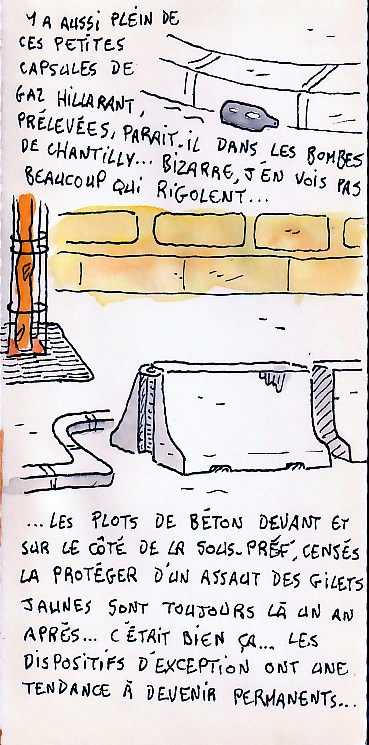 Y A AUSSI PLEIN DE
CES PETITES
CAPSULES DE
GAZ HILLARANT,
PRÉLEVÉES, PARAIT-IL DANS LES BOMBES
DE CHANTILLY... BIZARRE, J'EN VOIS PAS
BEAUCOUP QUI RIGOLENT...
...LES PLOTS DE BÉTON DEVANT ET
SUR LE CÔTÉ DE LA SOUS-PRÉF', CENSÉS
LA PROTÉGER D'UN ASSAUT DES GILETS
JAUNES SONT TOUJOURS LÀ UN AN
APRÈS... C'ÉTAIT BIEN ÇA... LES
DISPOSITIFS D'EXCEPTION ONT UNE
TENDANCE À DEVENIR PERMANENTS...